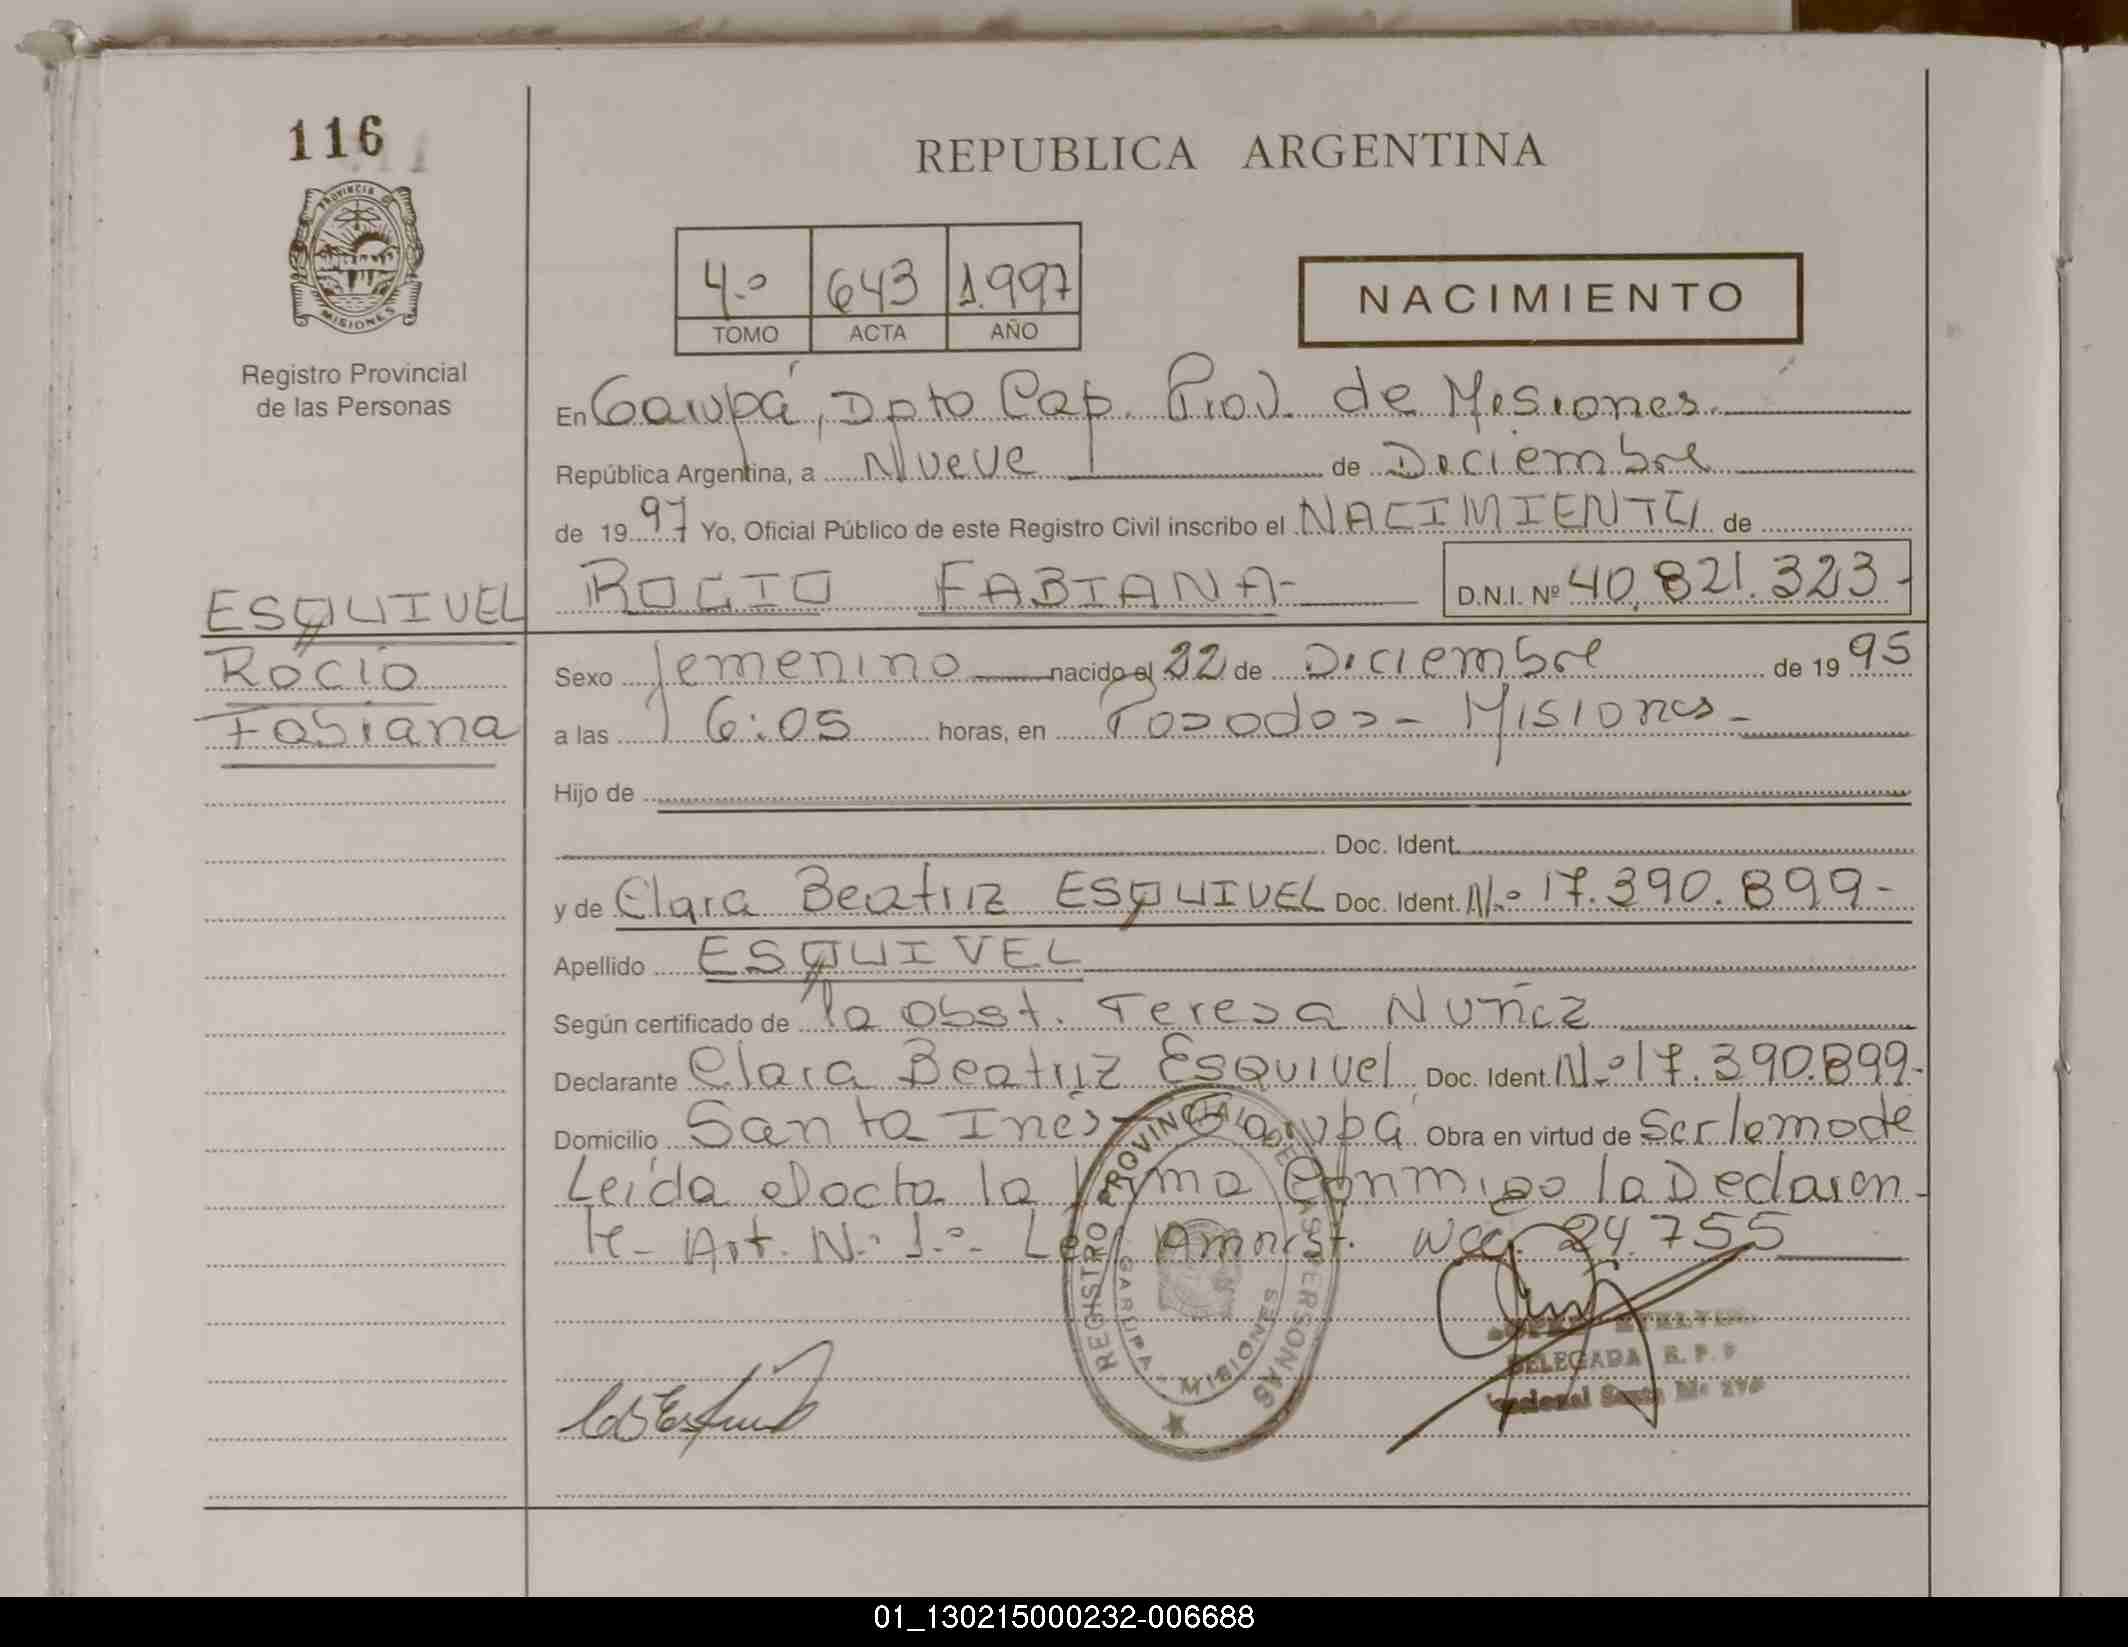 116
REPUBLICA ARGENTINA
PROVINCIA
MISIONES
Registro Provincial
de las Personas
4.º 643 1.997
TOMO ACTA AÑO
NACIMIENTO
En Garupá, Dpto Cap. Prov. de Misiones.
República Argentina, a Nueve de Diciembre
de 1997 Yo, Oficial Público de este Registro Civil inscribo el NACIMIENTO de
ROCIO FABIANA- D.N.I. Nº 40.821.323-
ESQUIVEL
Rocio
Fabiana
Sexo femenino nacido el 22 de Diciembre de 1995
a las 16:05 horas, en Posadas- Misiones-
Hijo de
Doc. Ident.
y de Clara Beatriz ESQUIVEL Doc. Ident. N.º 17.390.899-
Apellido ESQUIVEL
Según certificado de la Obst. Teresa Nuñez
Declarante Clara Beatriz Esquivel Doc. Ident. N.º 17.390.899-
Domicilio Santa Inés- Garupá Obra en virtud de Ser la made
Leída el acta la firma Conmigo la Declaran-
te- Art. N.º 1.º- Ley Amnist. 24.755
REGISTRO PROVINCIAL DE LAS PERSONAS
GARUPA - MISIONES
DELEGADA R. P. P
01_130215000232-006688